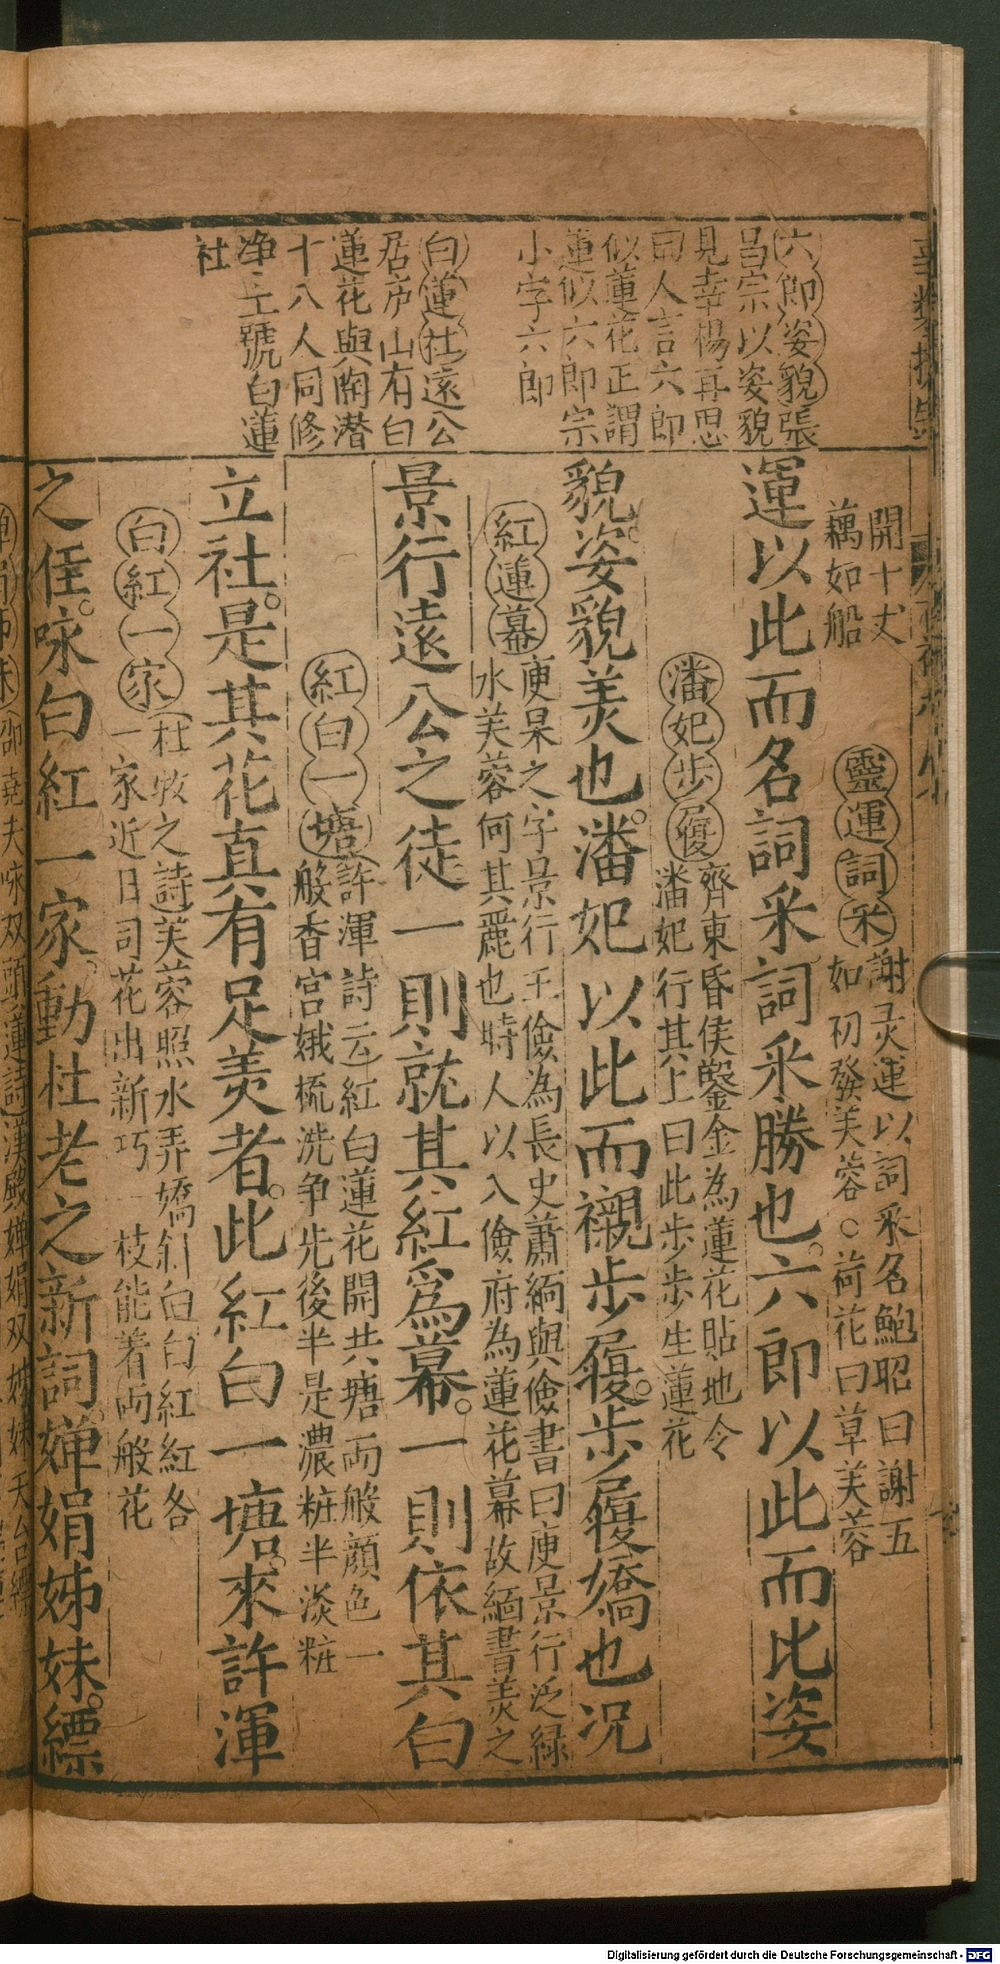 六郎姿貌張
昌宗以姿貌
見幸楊再思
曰人言六郎
似蓮花正謂
蓮似六郎宗
小字六郎
白蓮社遠公
居庐山有白
蓮花與陶潜
十八人同修
净土號白蓮
社
開十丈
藕如船
靈運詞采
謝灵運以詞采名鮑昭曰謝五
如初發芙蓉○荷花曰草芙蓉
運以此而名詞采詞采勝也。六郎以此而比姿
潘妃步履
齊東昏侯鑿金為蓮花貼地令
潘妃行其上曰此步步生蓮花
貌。姿貌美也。潘妃以此而襯步履。步履嬌也况
紅蓮幕
庾杲之字景行王儉為長史蕭緬與儉書曰庾景行泛緑
水芙蓉何其麗也時人以入儉府為蓮花幕故緬書美之
景行遠公之徒一則就其紅爲幕。一則依其白
紅白一塘
許渾詩云紅白蓮花開共塘両般顔色一
般香宫娥梳洗争先後半是濃粧半淡粧
立社。是其花真有足羙者。此紅白一塘。來許渾
白紅一家
杜牧之詩芙蓉照水弄嬌斜白白紅紅各
一家近日司花出新巧一枝能着両般花
之佳咏。白紅一家。動杜老之新詞。嬋娟姊妹。縹
邵堯夫咏双頭蓮詩漢殿嬋娟双姊妹天台縹
Digitalisierung gefördert durch die Deutsche Forschungsgemeinschaft - DFG